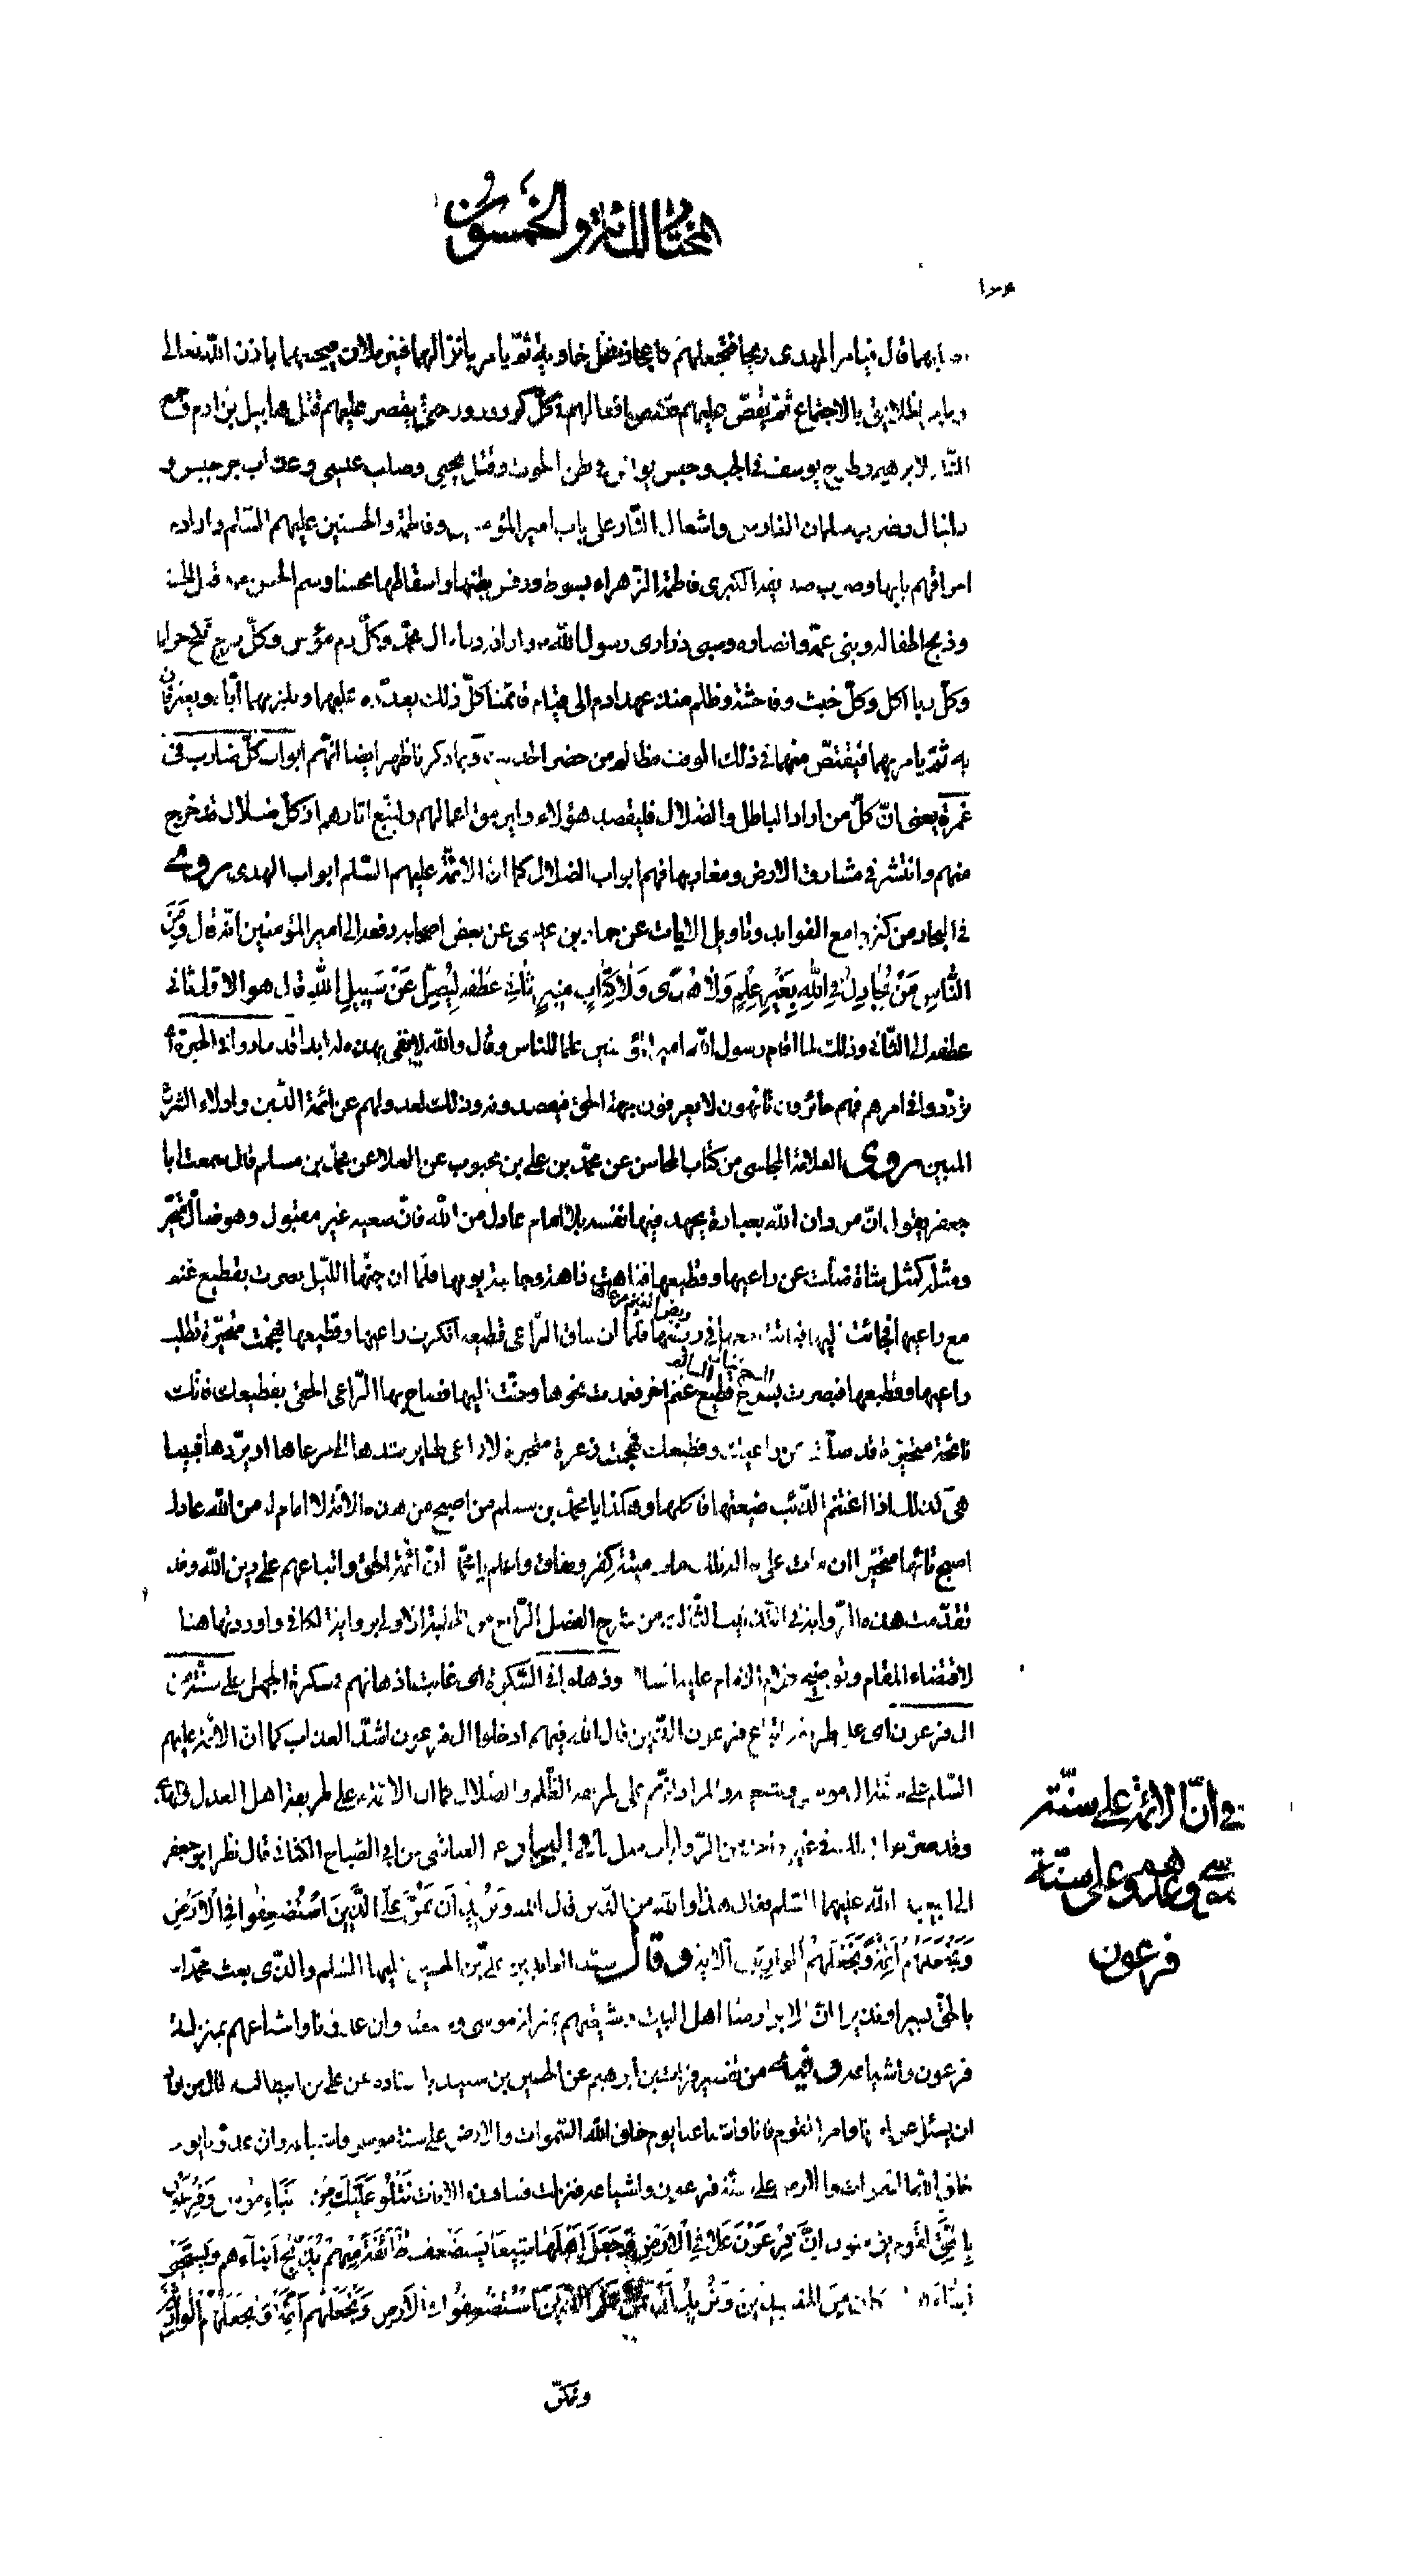 المختار المائة والخمسون
١٣٤
قال فيامر المهدى ريحا فتجعلهم كاعجاز نخل خاوية ثمّ يامر بانزالهما فينزلان فيحييهما باذن اللّه تعالى
ويامر الخلايق بالاجتماع ثمّ يقصّ عليهم قصص افعالهم فى كلّ كور ودور حتى يقصّ عليهم قتل هابيل بن ادم وجمع
النّار لابرهيم وطرح يوسف فى الجب وحبس يونس فى بطن الحوت وقتل يحيى وصلب عيسى وعذاب جرجيس و
دانيال وضرب سلمان الفارسى واشعال النّار على باب امير المؤمنين وفاطمة والحسنين عليهم السّلم وارادة
احراقهم بها وضرب صديقة الكبرى فاطمة الزّهراء بسوط ورفس بطنها واسقاطها محسنا وسم الحسن وقتل الحسين
وذبح اطفاله وبنى عمّه وانصاره وسبى ذرارى رسول اللّه واراقة دماء ال محمّد وكلّ دم مؤمن وكلّ فرج نكح حراما
وكلّ ربا اكل وكلّ خبث وفاحشة وظلم منذ عهد ادم الى قيام قائمنا كلّ ذلك يعدّده عليهما ويلزمهما ايّاه ويعترفان
به ثمّ يامر بهما فيقتصّ منهما فى ذلك الوقت مظالم من حضر الحديث وبما ذكرنا ظهر ايضا انّهم ابواب كلّ ضارب فى
غمرة يعنى انّ كلّ من اراد الباطل والضلال فليقصد هؤلاء وليرمق اعمالهم وليتّبع اثارهم اذ كلّ ضلال قد خرج
منهم وانتشر فى مشارق الارض ومغاربها فهم ابواب الضلال كما انّ الائمّة عليهم السّلم ابواب الهدى روى
فى البحار من كنز جامع الفوايد وتاويل الايات عن حماد بن عيسى عن بعض اصحابه رفعه الى امير المؤمنين انّه قال وَمِنَ
النَّاسِ مَنْ يُجَادِلُ فِى اللّهِ بِغَيْرِ عِلْمٍ وَلَا هُدًى وَلَا كِتَابٍ مُنِيرٍ ثَانِىَ عِطْفِهِ لِيُضِلَّ عَنْ سَبِيلِ اللّهِ قال هو الاول ثانى
عطفه الى الثّانى وذلك لما اقام رسول اللّه امير المؤمنين علما للناس وقال واللّه لا نفى بهذا له ابدا قد ماروا فى الحيرة اى
تردّدوا فى امرهم فهم حائرون تائهون لا يعرفون جهة الحق فيقصدونه وذلك لعدولهم عن ائمّة الدّين واولاء الشرع
المبين روى العلامة المجلسى من كتاب المحاسن عن محمّد بن على بن محبوب عن العلا عن محمّد بن مسلم قال سمعت ابا
جعفر يقول انّ من دان اللّه بعبادة يجهد فيها نفسه بلا امام عادل من اللّه فانّ سعيه غير مقبول وهو ضالّ متحيّر
ومثله كمثل شاة ضلّت عن راعيها وقطيعها فتاهت ذاهبة وجائية يومها فلمّا ان جنّها اللّيل بصرت بقطيع غنم
مع راعيها فجائت اليها فباتت معها فى ربضتها فلمّا ان ساق الرّاعى قطيعه انكرت راعيها وقطيعها فهجمت متحيّرة تطلب
راعيها وقطيعها فبصرت بسرح قطيع غنم اخر فعمدت نحوها وحنّت اليها فصاح بها الرّاعى الحقى بقطيعك فانّك
تائهة متحيّرة قد ضللت عن راعيك وقطيعك فهجمت ذعرة متحيرة لا راعى لها يرشدها الى مرعاها او يردّها فبينا
هى كذلك اذا اغتنم الذّئب ضيعتها فاكلها وهكذا يا محمّد بن مسلم من اصبح من هذه الامّة لا امام له من اللّه عادل
اصبح تائها متحيّرا ان مات على حاله تلك مات ميتة كفر ونفاق واعلم يا محمّد انّ ائمّة الحق واتباعهم على دين اللّه وقد
تقدّمت هذه الرّواية فى التّذنيب الثّالث من شرح الفصل الرّابع من الخطبة الاولى برواية الكافى واوردتها هنا
لاقتضاء المقام وتوضيحه مرام الامام عليه السّلام وذهلوا فى السّكرة اى غابت اذهانهم فى سكرة الجهل على سنّة من
ال فرعون اى على طريقة اتباع فرعون الّذين قال اللّه فيهم ادخلوا ال فرعون اشدّ العذاب كما ان الائمّة عليهم
السّلم على سنّة ال موسى وشيعته والمراد انّهم على طريقة الظّلم والضلال كما انّ الائمّة على طريقة اهل العدل
وقد صرّحوا بذلك فى غير واحد من الرّوايات مثل ما فى البحار عن العياشى عن ابى الصّباح الكنانى قال نظر ابو جعفر
الى ابى عبد اللّه عليهما السّلم فقال هذا واللّه من الّذين قال اللّه وَنُرِيدُ اَنْ نَمُنَّ عَلَى الَّذِينَ اسْتُضْعِفُوا فِى الْاَرْضِ
وَنَجْعَلَهُمْ اَئِمَّةً وَنَجْعَلَهُمُ الْوَارِثِينَ الاية وقال سيّد العابدين علىّ بن الحسين عليهما السّلم والّذى بعث محمّدا
بالحقّ بشيرا ونذيرا انّ الابرار منّا اهل البيت وشيعتهم بمنزلة موسى وشيعته وان عدوّنا واشياعهم بمنزلة
فرعون واشياعه وفيه من تفسير فرات بن ابرهيم عن الحسين بن سعيد باسناده عن على بن ابيطالب قال من اراد
ان يسئل عن امرنا وامر القوم فانا واشياعنا يوم خلق اللّه السّموات والارض على سنة موسى واشياعه وان عدوّنا يوم
خلق اللّه السّموات والارض على سنّة فرعون واشياعه فنزلت فينا هذه الايات نَتْلُو عَلَيْكَ مِنْ نَبَاءِ مُوسَى وَفِرْعَوْنَ
بِالْحَقِّ لِقَوْمٍ يؤمنون اِنَّ فِرْعَوْنَ عَلَا فِى الْاَرْضِ وَجَعَلَ اَهْلَهَا شِيَعًا يَسْتَضْعِفُ طَائِفَةً مِنْهُمْ يُذَبِّحُ اَبْنَاءَهُمْ وَيَسْتَحْيِى
نِسَاءَهُمْ كان مِنَ المفسِدِينَ وَنُرِيدُ اَنْ نَمُنَّ عَلَى الَّذِينَ اسْتُضْعِفُوا فِى الْاَرْضِ وَنَجْعَلَهُمْ اَئِمَّةً وَنَجْعَلَهُمُ الْوَارِثِينَ
ونمكّن
فى انّ الائمّة على سنّة
موسى وعدوّهم على سنّة
فرعون